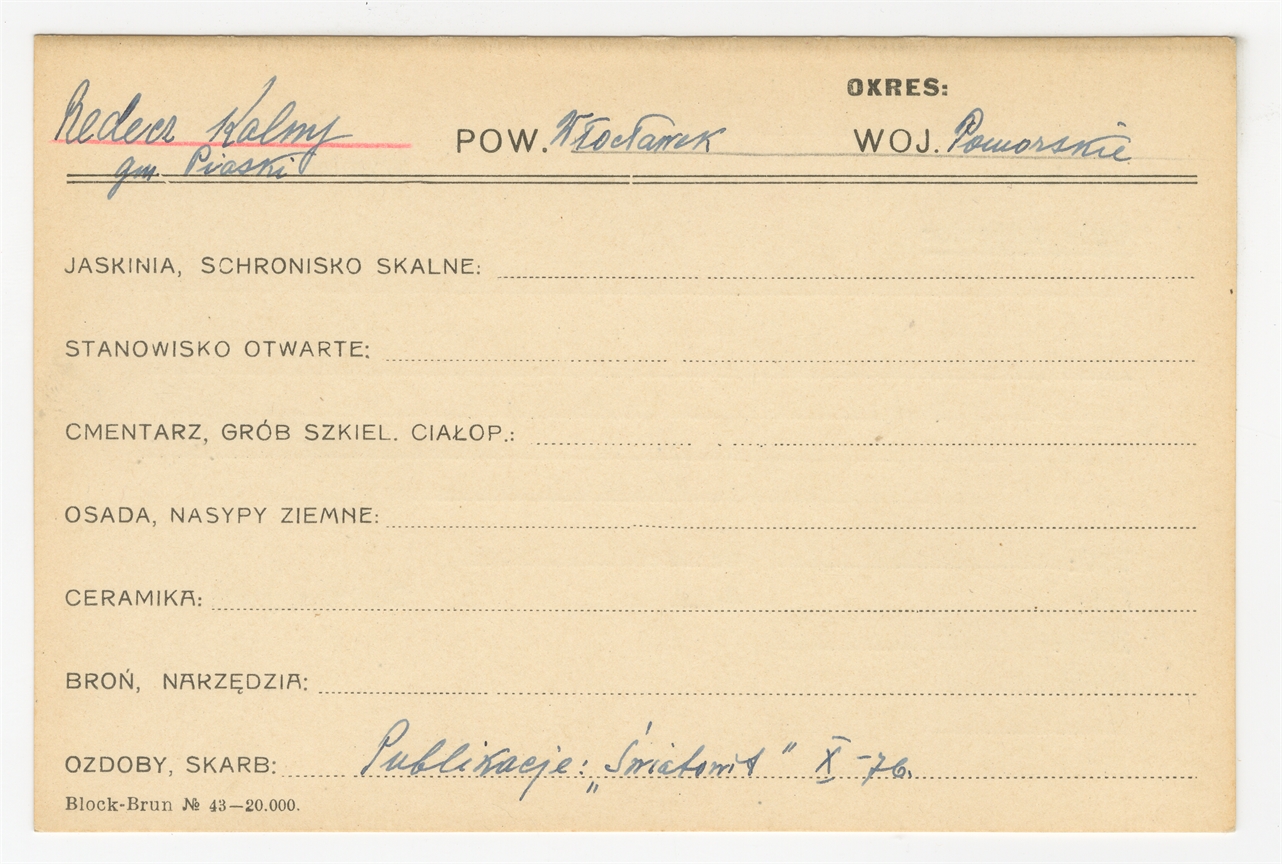 OKRES:
Redecz Kalny POW. Włocławek WOJ. Pomorskie
gm. Piaski
JASKINIA, SCHRONISKO SKALNE:
STANOWISKO OTWARTE:
CMENTARZ, GRÓB SZKIEL. CIAŁOP.:
OSADA, NASYPY ZIEMNE:
CERAMIKA:
BROŃ, NARZĘDZIA:
OZDOBY, SKARB: Publikacje: „Światowit" X-76.
Block-Brun № 43—20.000.